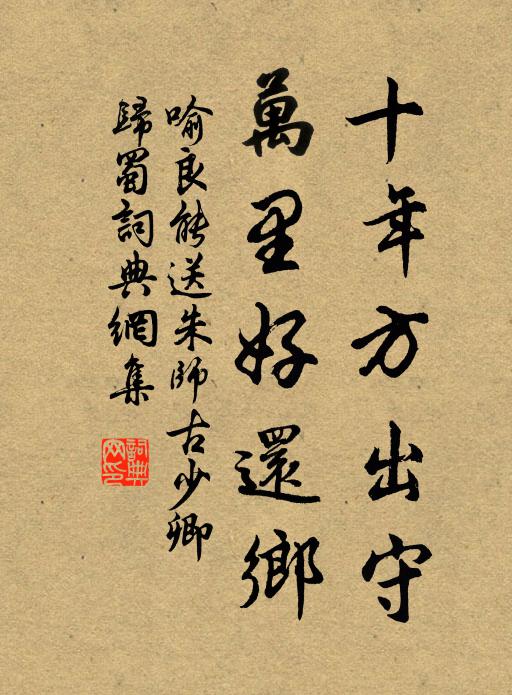 十年方出守
萬里好還鄉
喻良能送朱師古少卿
歸蜀詞典網集
詞典網印